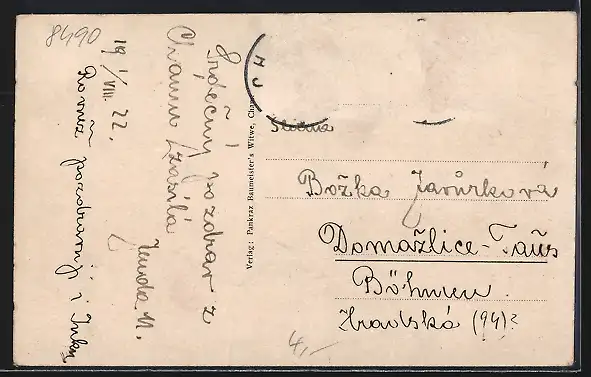 8490
19/VIII. 22.
Srdečný pozdrav z
Chammu zasílá
Jenda N.
Rovněž pozdravuji i
Verlag: Pankraz Baumeister's Witwe, Cham
Slečna
Božka Javůrková
Domažlice-Taus
Böhmen
Hradská (94)?
4,-